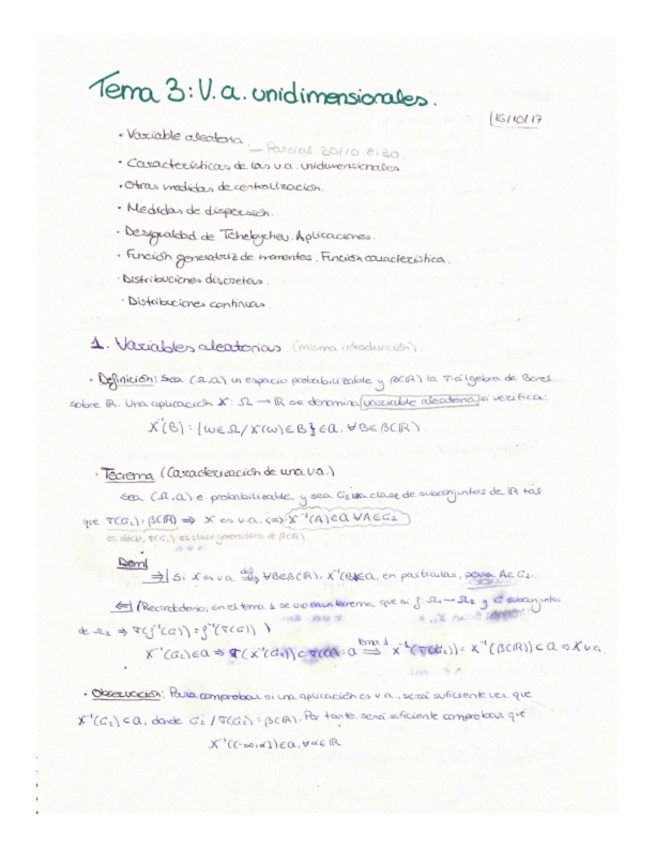 Tema 3: V.a. unidimensionales.
16/10/17
· Variable aleatoria.
— Parcial 30/10 8:30.
· Características de las v.a. unidimensionales
· Otras medidas de centralización.
· Medidas de dispersión.
· Desigualdad de Tchebychev. Aplicaciones.
· Función generatriz de momentos. Función característica.
· Distribuciones discretas.
· Distribuciones continuas.
1. Variables aleatorias. (misma introducción).
· Definición: Sea (Ω,a) un espacio probabilizable y β(ℝ) la σ-álgebra de Borel
sobre ℝ. Una aplicación X: Ω → ℝ se denomina variable aleatoria si verifica:
X⁻¹(B) = {ω∈Ω / X(ω)∈B} ∈ a, ∀B∈β(ℝ).
· Teorema (Caracterización de una v.a.)
Sea (Ω,a) e. probabilizable, y sea G₂ una clase de subconjuntos de ℝ tal
que σ(G₂) = β(ℝ) ⇒ X es v.a. ⟺ X⁻¹(A)∈a ∀A∈G₂
es decir, σ(G₂) es clase generadora de β(ℝ).
Dem/
⇒| Si X es v.a. def ⟹ ∀B∈β(ℝ), X⁻¹(B)∈a, en particular, para A∈G₂.
⇐| (Recordatorio, en el tema 1 se vio un teorema que si f: Ω₁→Ω₂ y G subconjuntos
de Ω₂ ⇒ σ(f⁻¹(G)) = f⁻¹(σ(G)) )
X⁻¹(G₂)⊂a ⇒ σ(X⁻¹(G₂)) ⊂ σ(a) = a tema 1 ⟹ X⁻¹(σ(G₂)) = X⁻¹(β(ℝ)) ⊂ a ⇒ X v.a.
· Observación: Para comprobar si una aplicación es v.a., será suficiente ver que
X⁻¹(G₂) ⊂ a, donde G₂ / σ(G₂) = β(ℝ). Por tanto, será suficiente comprobar que
X⁻¹((-∞,α])∈a, ∀α∈ℝ.